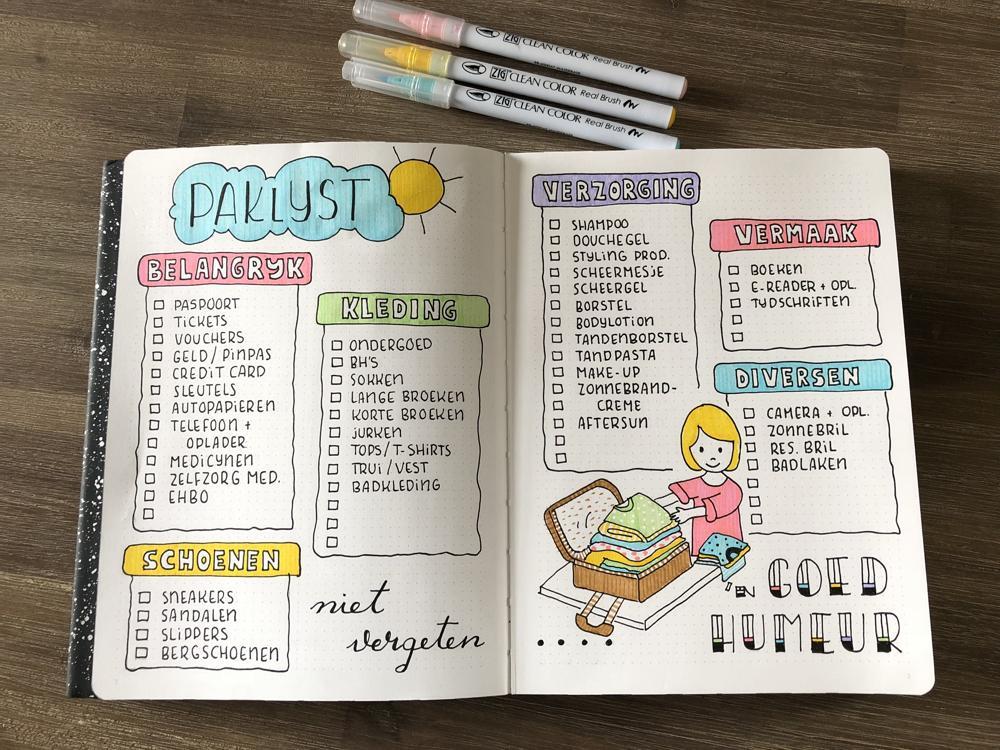 ZIG CLEAN COLOR Real Brush
ZIG CLEAN COLOR Real Brush
ZIG CLEAN COLOR Real Brush
PAKLYST
BELANGRYK
PASPOORT
TICKETS
VOUCHERS
GELD/PINPAS
CREDIT CARD
SLEUTELS
AUTOPAPIEREN
TELEFOON +
OPLADER
MEDICYNEN
ZELFZORG MED.
EHBO
SCHOENEN
SNEAKERS
SANDALEN
SLIPPERS
BERGSCHOENEN
KLEDING
ONDERGOED
BH'S
SOKKEN
LANGE BROEKEN
KORTE BROEKEN
JURKEN
TOPS/T-SHIRTS
TRUI/VEST
BADKLEDING
niet
vergeten
VERZORGING
SHAMPOO
DOUCHEGEL
STYLING PROD.
SCHEERMESJE
SCHEERGEL
BORSTEL
BODYLOTION
TANDENBORSTEL
TANDPASTA
MAKE-UP
ZONNEBRAND-
CREME
AFTERSUN
VERMAAK
BOEKEN
E-READER + OPL.
TYDSCHRIFTEN
DIVERSEN
CAMERA + OPL.
ZONNEBRIL
RES. BRIL
BADLAKEN
....
'N GOED
HUMEUR